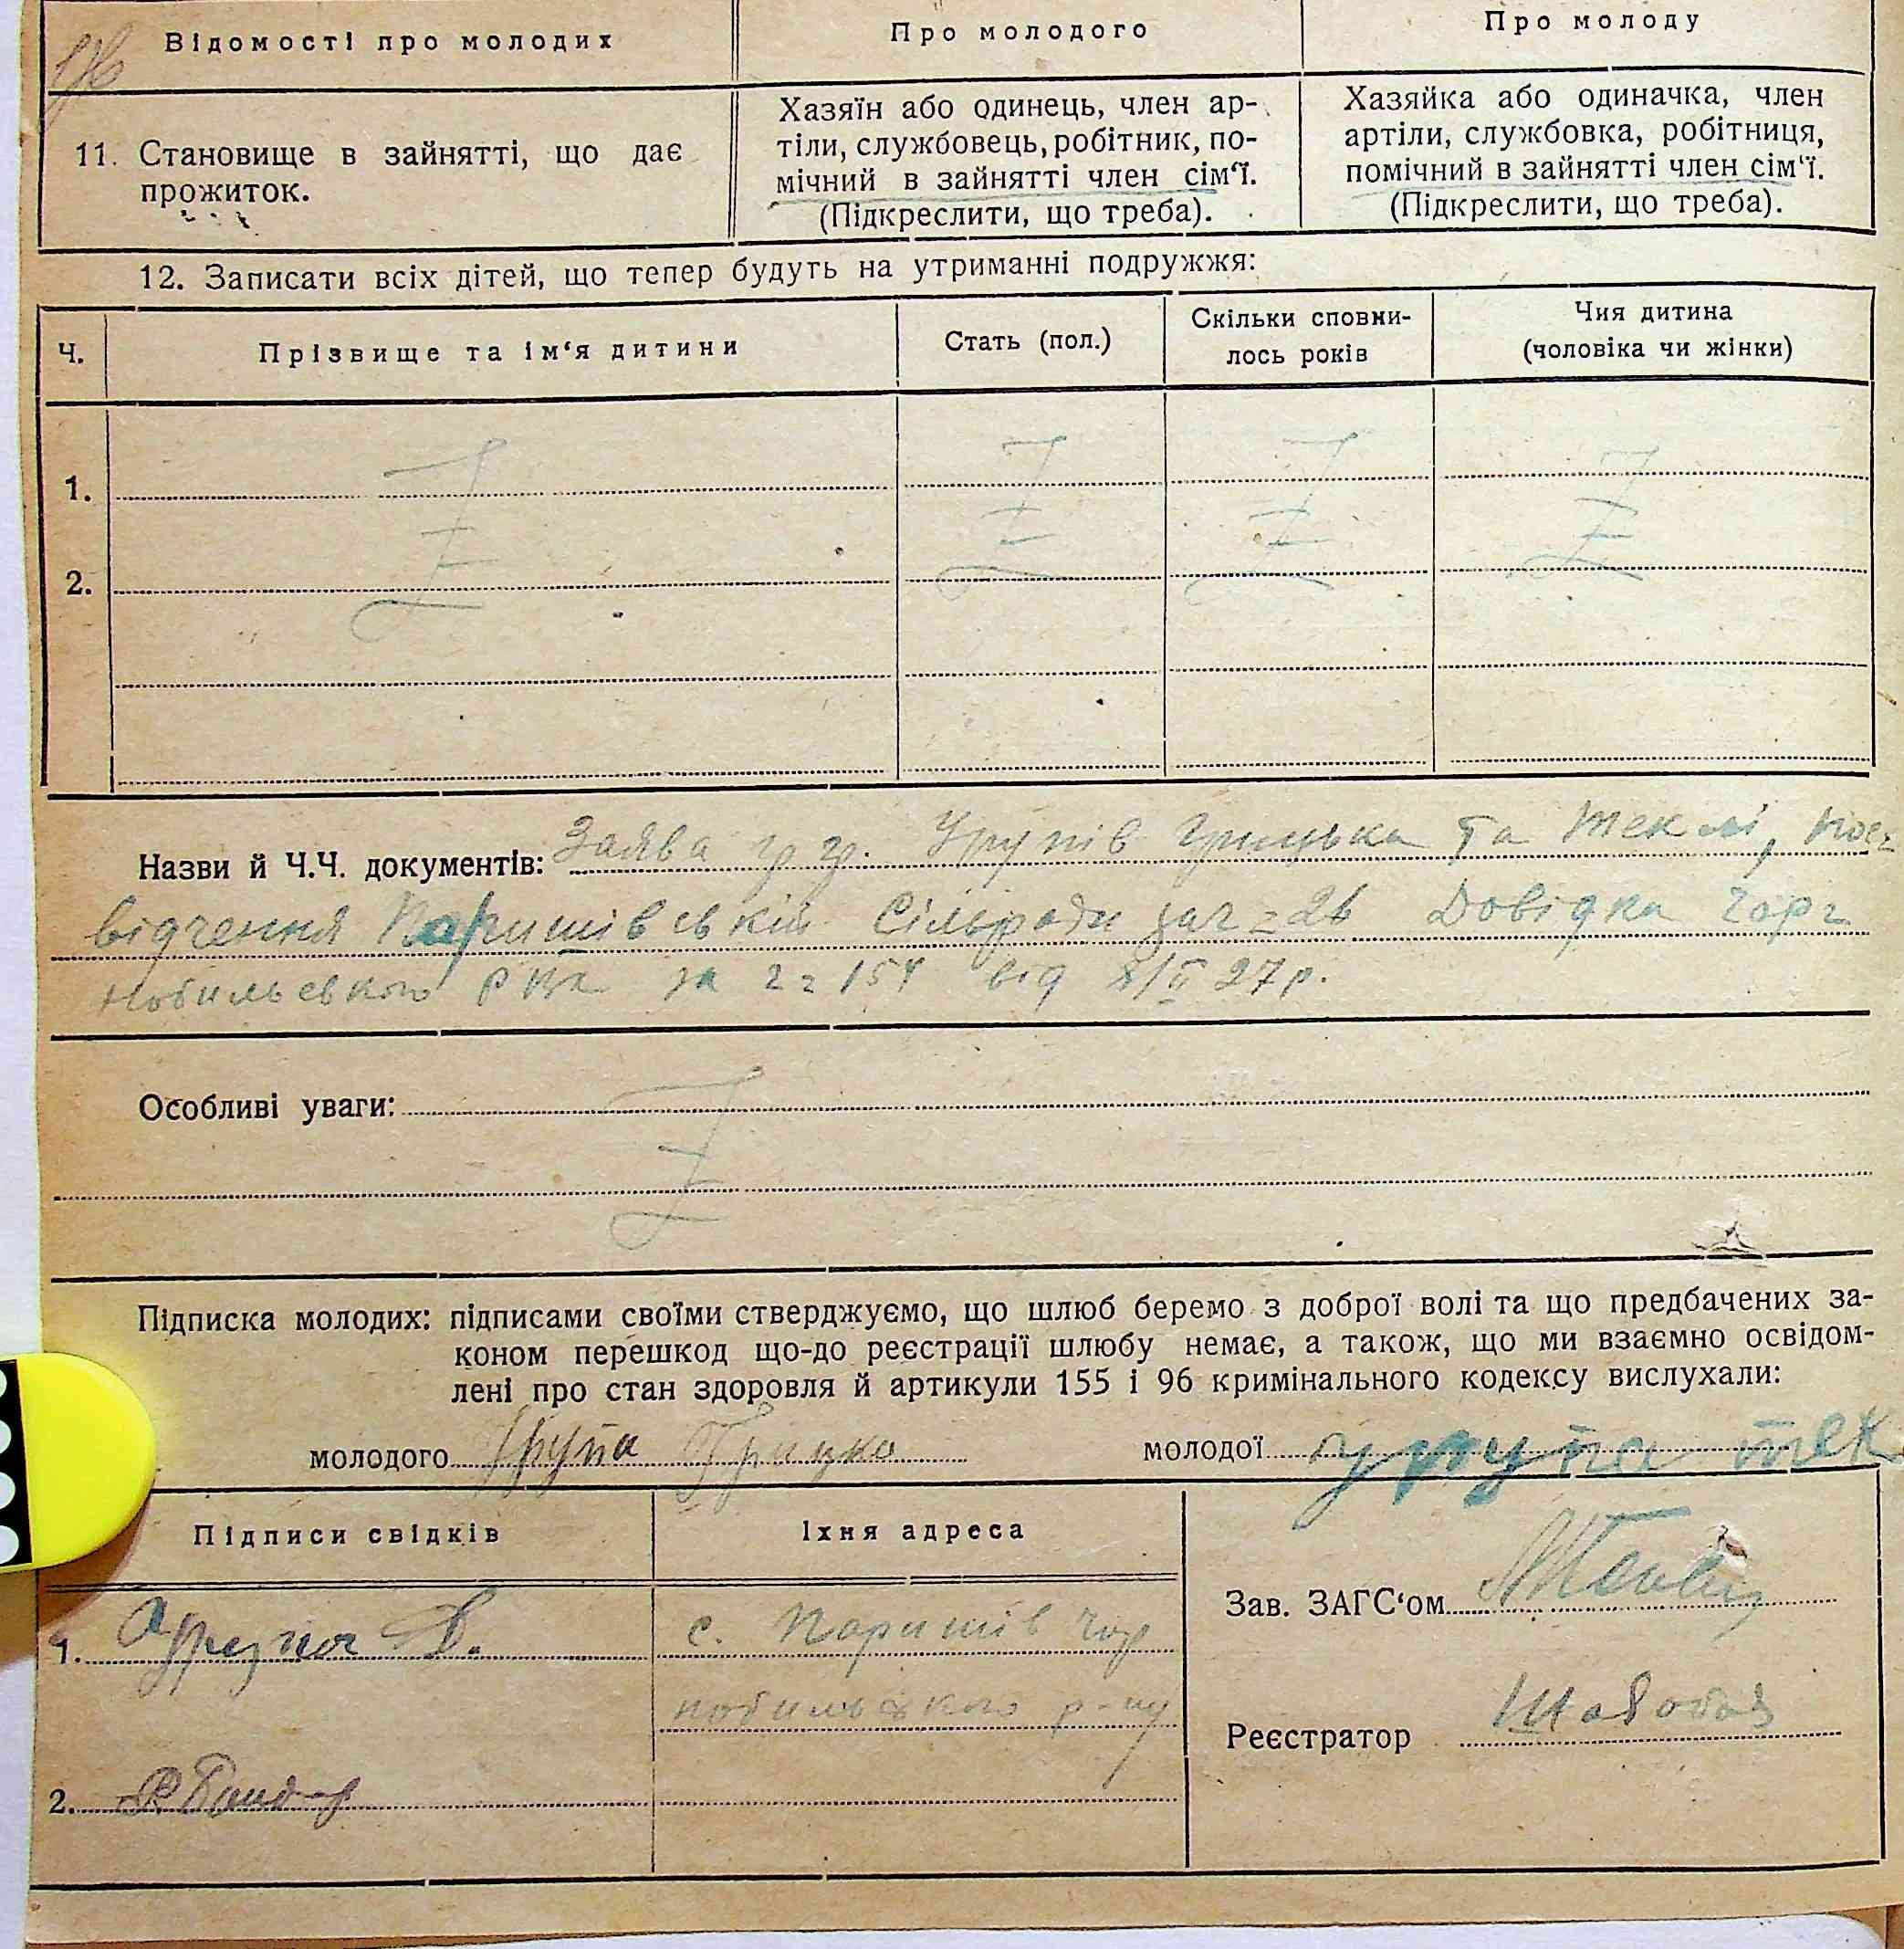 Відомості про молодих
Про молодого
Про молоду
11. Становище в зайнятті, що дає
прожиток.
Хазяїн або одинець, член ар-
тіли, службовець, робітник, по-
мічний в зайнятті член сім‘ї.
(Підкреслити, що треба).
Хазяйка або одиначка, член
артіли, службовка, робітниця,
помічний в зайнятті член сім‘ї.
(Підкреслити, що треба).
12. Записати всіх дітей, що тепер будуть на утриманні подружжя:
Ч.
Прізвище та ім‘я дитини
Стать (пол.)
Скільки сповни-
лось років
Чия дитина
(чоловіка чи жінки)
1.
2.
Назви й Ч.Ч. документів: Заява гр гр. Урупів Грицька та Теклі, пос-
відчення Паришівській Сільради за ч = 26 Довідка Чор-
нобильського РВК за ч = 154 від 8/II 27 р.
Особливі уваги:
Підписка молодих: підписами своїми стверджуємо, що шлюб беремо з доброї волі та що предбачених за-
коном перешкод що-до реєстрації шлюбу немає, а також, що ми взаємно освідом-
лені про стан здоровля й артикули 155 і 96 кримінального кодексу вислухали:
молодого Урупа Грицко
молодої урупа тек
Підписи свідків
Їхня адреса
1. Урупа Д.
с. Паришів Чор
нобильського р-ну
2.
Зав. ЗАГС‘ом
Реєстратор